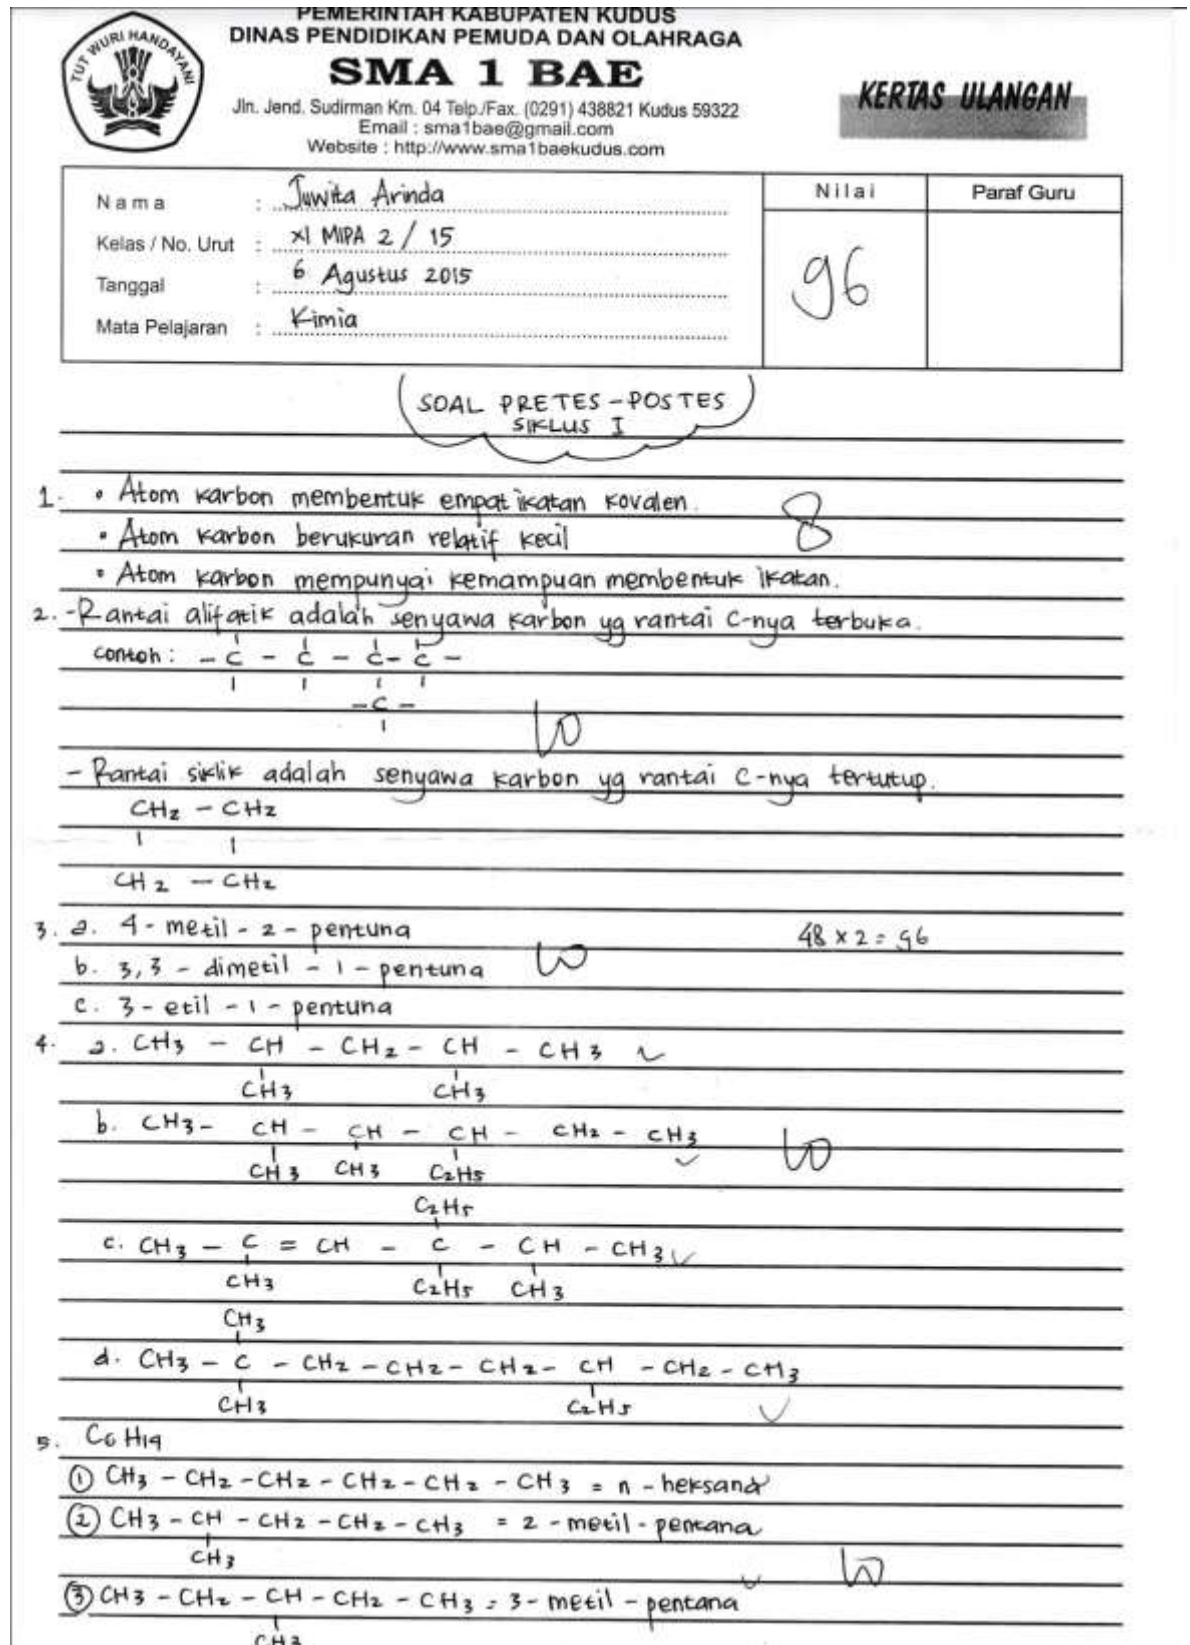 TUT WURI HANDAYANI
PEMERINTAH KABUPATEN KUDUS
DINAS PENDIDIKAN PEMUDA DAN OLAHRAGA
SMA 1 BAE
Jln. Jend. Sudirman Km. 04 Telp./Fax. (0291) 438821 Kudus 59322
Email : sma1bae@gmail.com
Website : http://www.sma1baekudus.com
KERTAS ULANGAN
Nama : Juwita Arinda
Kelas / No. Urut : XI MIPA 2 / 15
Tanggal : 6 Agustus 2015
Mata Pelajaran : Kimia
Nilai
Paraf Guru
96
SOAL PRETES - POSTES
SIKLUS I
1. • Atom karbon membentuk empat ikatan kovalen.
8
• Atom karbon berukuran relatif kecil
• Atom karbon mempunyai kemampuan membentuk ikatan.
2. - Rantai alifatik adalah senyawa karbon yg rantai C-nya terbuka.
contoh : - C - C - C - C -
- C -
10
- Rantai siklik adalah senyawa karbon yg rantai C-nya tertutup.
CH2 - CH2
CH2 - CH2
3. a. 4 - metil - 2 - pentuna
48 x 2 = 96
b. 3,3 - dimetil - 1 - pentuna
10
c. 3 - etil - 1 - pentuna
4. a. CH3 - CH - CH2 - CH - CH3
CH3 CH3
b. CH3 - CH - CH - CH - CH2 - CH3
10
CH3 CH3 C2H5
C2H5
c. CH3 - C = CH - C - CH - CH3
CH3 C2H5 CH3
CH3
d. CH3 - C - CH2 - CH2 - CH2 - CH - CH2 - CH3
CH3 C2H5
5. C6H14
① CH3 - CH2 - CH2 - CH2 - CH2 - CH3 = n - heksana
② CH3 - CH - CH2 - CH2 - CH3 = 2 - metil - pentana
CH3
10
③ CH3 - CH2 - CH - CH2 - CH3 = 3 - metil - pentana
CH3